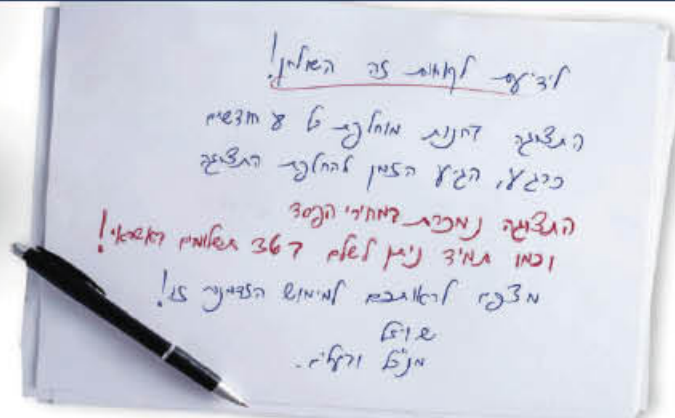 לידיעת לקוחות זה השולחן!
התצוגה בחנות מוחלפת כל 8 חודשים
כרגע, הגיע הזמן להחלפת התצוגה
התצוגה נמכרת במחירי הפסד
וכמו תמיד ניתן לשלם ב 36 תשלומים באשראי!
מצפה לראותכם למימוש הזדמנות זו!
מנכ"ל ובעלים.